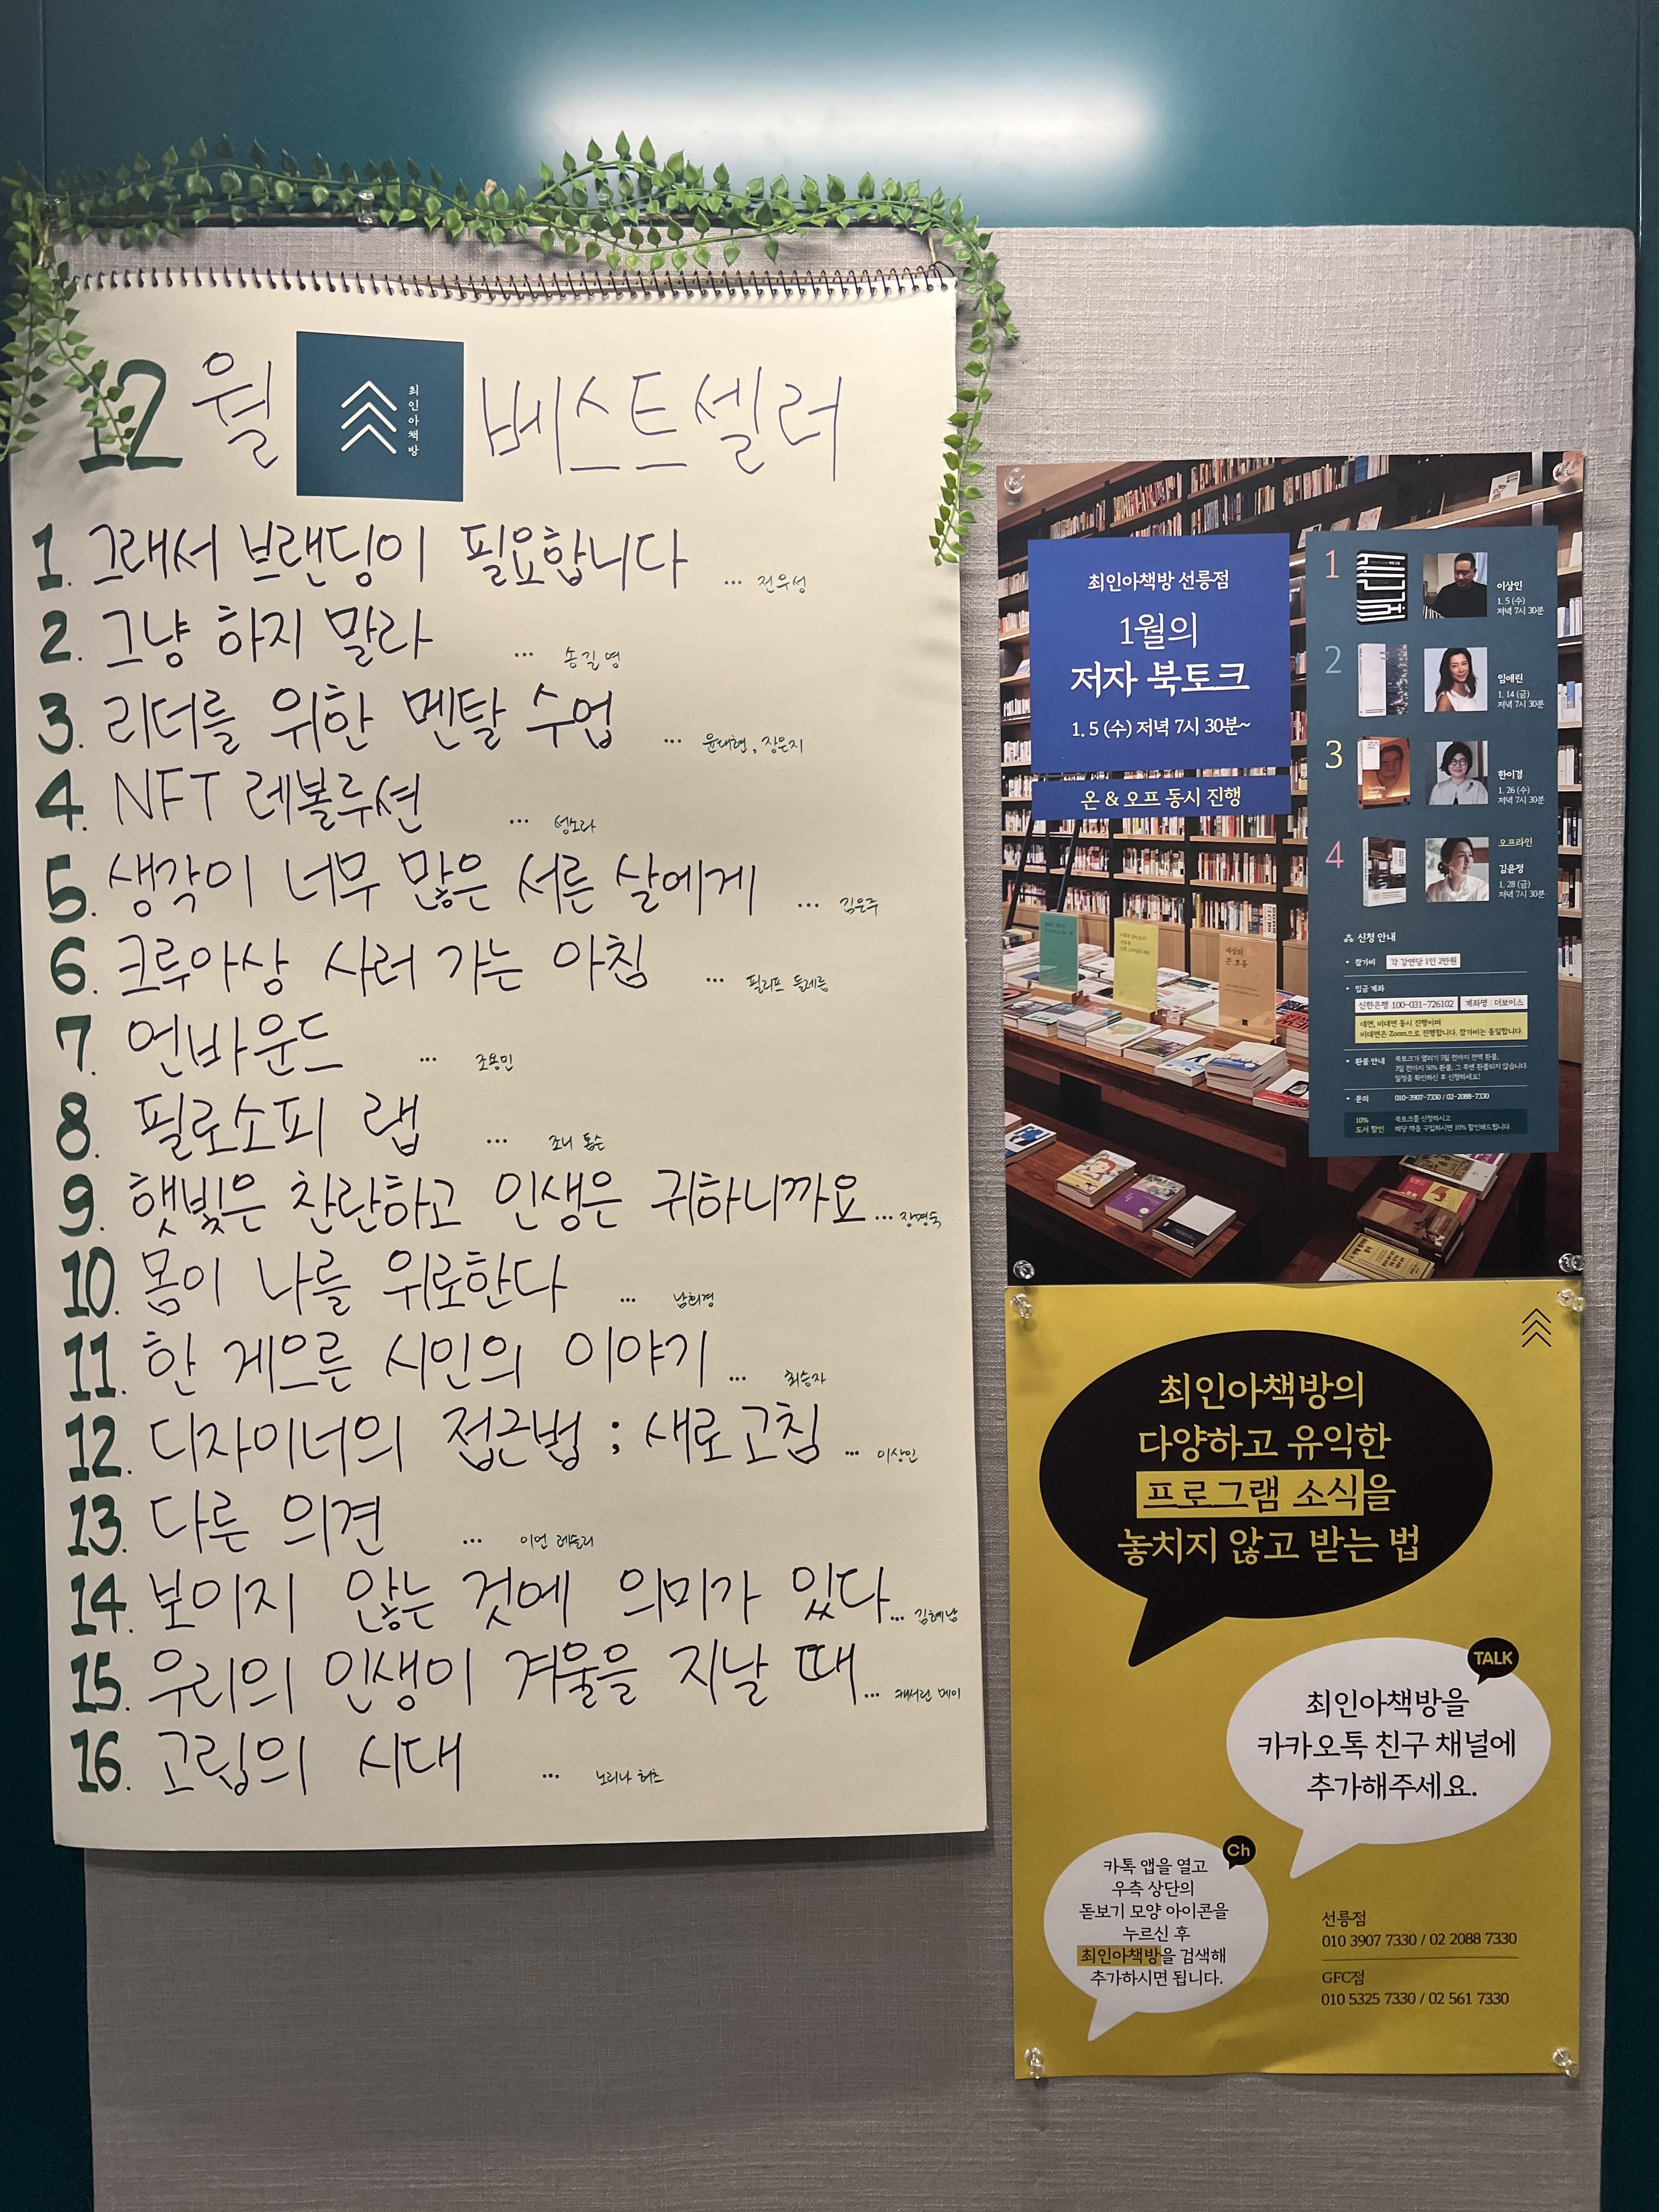 12월 최인아책방 베스트셀러
1. 그래서 브랜딩이 필요합니다 ... 전우성
2. 그냥 하지 말라 ... 송길영
3. 리더를 위한 멘탈 수업 ... 윤대현, 장은지
4. NFT 레볼루션 ... 성소라
5. 생각이 너무 많은 서른 살에게 ... 김은주
6. 크루아상 사러 가는 아침 ... 필리프 들레름
7. 언바운드 ... 조용민
8. 필로소피 랩 ... 조니 톰슨
9. 햇빛은 찬란하고 인생은 귀하니까요 ... 장명숙
10. 몸이 나를 위로한다 ... 남희경
11. 한 게으른 시인의 이야기 ... 최승자
12. 디자이너의 접근법 ; 새로고침 ... 이상인
13. 다른 의견 ... 이언 레슬리
14. 보이지 않는 것에 의미가 있다 ... 김혜남
15. 우리의 인생이 겨울을 지날 때 ... 캐서린 메이
16. 고립의 시대 ... 노리나 허츠
최인아책방 선릉점
1월의
저자 북토크
1. 5 (수) 저녁 7시 30분~
온 & 오프 동시 진행
1
이상인
1. 5 (수)
저녁 7시 30분
2
임애린
1. 14 (금)
저녁 7시 30분
3
한이경
1. 26 (수)
저녁 7시 30분
4
오프라인
김윤정
1. 28 (금)
저녁 7시 30분
신청 안내
• 참가비 각 강연당 1인 2만원
• 입금 계좌
신한은행 100-031-726102 계좌명 : 더보이스
대면, 비대면 동시 진행이며
비대면은 Zoom으로 진행합니다. 참가비는 동일합니다.
• 환불 안내 북토크가 열리기 5일 전까지 전액 환불,
3일 전까지 50% 환불, 그 후엔 환불되지 않습니다.
일정을 확인하신 후 신청하세요!
• 문의 010-3907-7330 / 02-2088-7330
10%
도서 할인
북토크를 신청하시고
해당 책을 구입하시면 10% 할인해드립니다.
세상의
큰 흐름
최인아책방의
다양하고 유익한
프로그램 소식을
놓치지 않고 받는 법
TALK
최인아책방을
카카오톡 친구 채널에
추가해주세요.
Ch
카톡 앱을 열고
우측 상단의
돋보기 모양 아이콘을
누르신 후
최인아책방을 검색해
추가하시면 됩니다.
선릉점
010 3907 7330 / 02 2088 7330
GFC점
010 5325 7330 / 02 561 7330